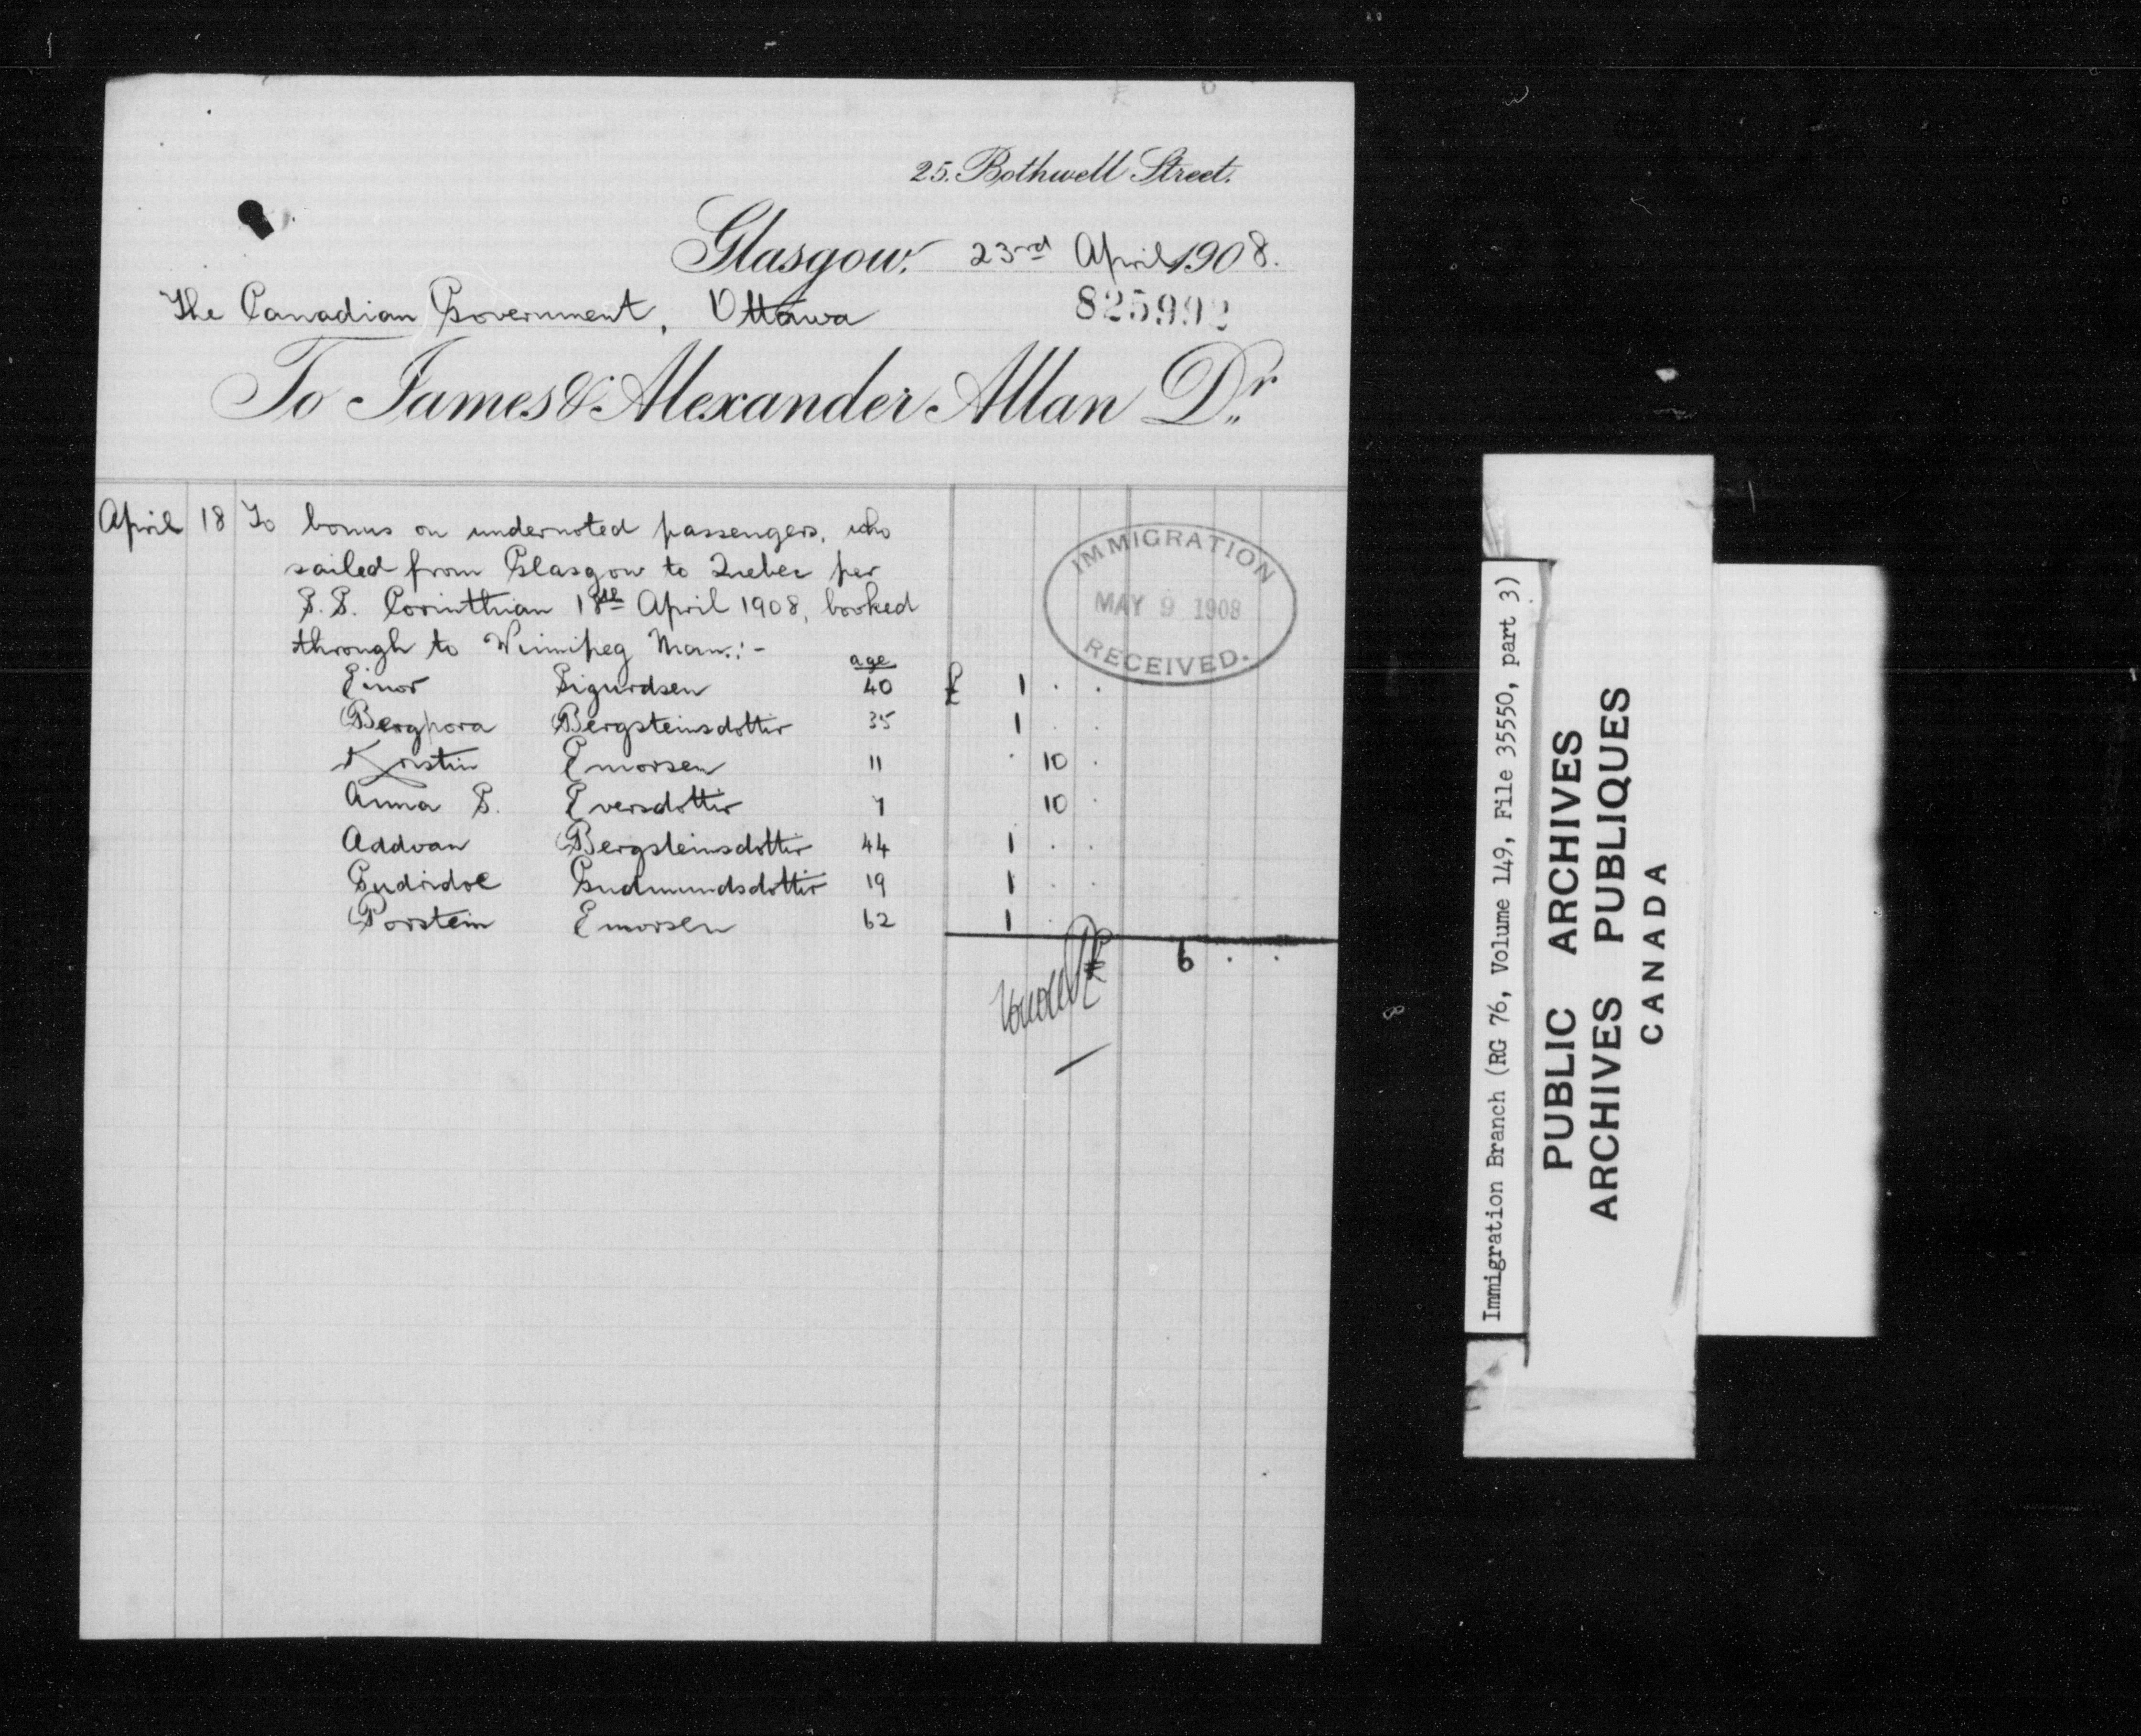 25. Bothwell Street.
Glasgow, 23rd April 1908.
The Canadian Government, Ottawa
825992
To James & Alexander Allan Dr.
April 18 To bonus on undernoted passengers, who
sailed from Glasgow to Quebec per
S.S. Corinthian 18th April 1908, booked
through to Winnipeg Man.:-
age
Einor Sigurdsen 40 £ 1 . .
Bergpora Bergsteinsdottir 35 1 . .
Kristin Emorsen 11 . 10 .
Anna S. Eversdottir 7 10 .
Addvan Bergsteinsdottir 44 1 . .
Gudridoe Gudmundsdottir 19 1 . .
Porstein Emorsen 62 1 .
£ 6 . .
IMMIGRATION
MAY 9 1908
RECEIVED.
Immigration Branch (RG 76, Volume 149, File 35550, part 3)
PUBLIC ARCHIVES
ARCHIVES PUBLIQUES
CANADA